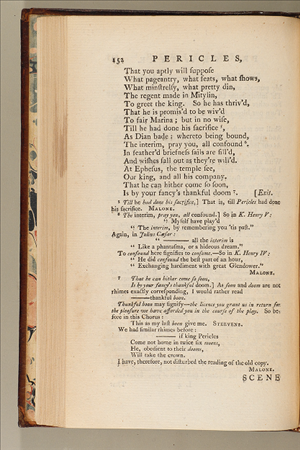 152 PERICLES,
That you aptly will suppose
What pageantry, what feats, what shows,
What minstrelsy, what pretty din,
The regent made in Mitylin,
To greet the king. So he has thriv'd,
That he is promis'd to be wiv'd
To fair Marina; but in no wise,
Till he had done his sacrifice ⁵,
As Dian bade: whereto being bound,
The interim, pray you, all confound ⁶.
In feather'd briefness sails are fill'd,
And wishes fall out as they're will'd.
At Ephesus, the temple see,
Our king, and all his company.
That he can hither come so soon,
Is by your fancy's thankful doom ⁷. [Exit.
⁵ Till he had done his sacrifice,] That is, till Pericles had done
his sacrifice. MALONE.
⁶ The interim, pray you, all confound.] So in K. Henry V:
" Myself have play'd
" The interim, by remembering you 'tis past."
Again, in Julius Cæsar:
" ——— all the interim is
" Like a phantasma, or a hideous dream."
To confound here signifies to consume.—So in K. Henry IV:
" He did confound the best part of an hour,
" Exchanging hardiment with great Glendower."
MALONE.
⁷ That he can hither come so soon,
Is by your fancy's thankful doom.] As soon and doom are not
rhimes exactly corresponding, I would rather read
——thankful boon.
Thankful boon may signify—the licence you grant us in return for
the pleasure we have afforded you in the course of the play. So before
in this Chorus:
This as my last boon give me. STEEVENS.
We had similar rhimes before:
—— if king Pericles
Come not home in twice six moons,
He, obedient to their dooms,
Will take the crown.
I have, therefore, not disturbed the reading of the old copy.
MALONE.
SCENE